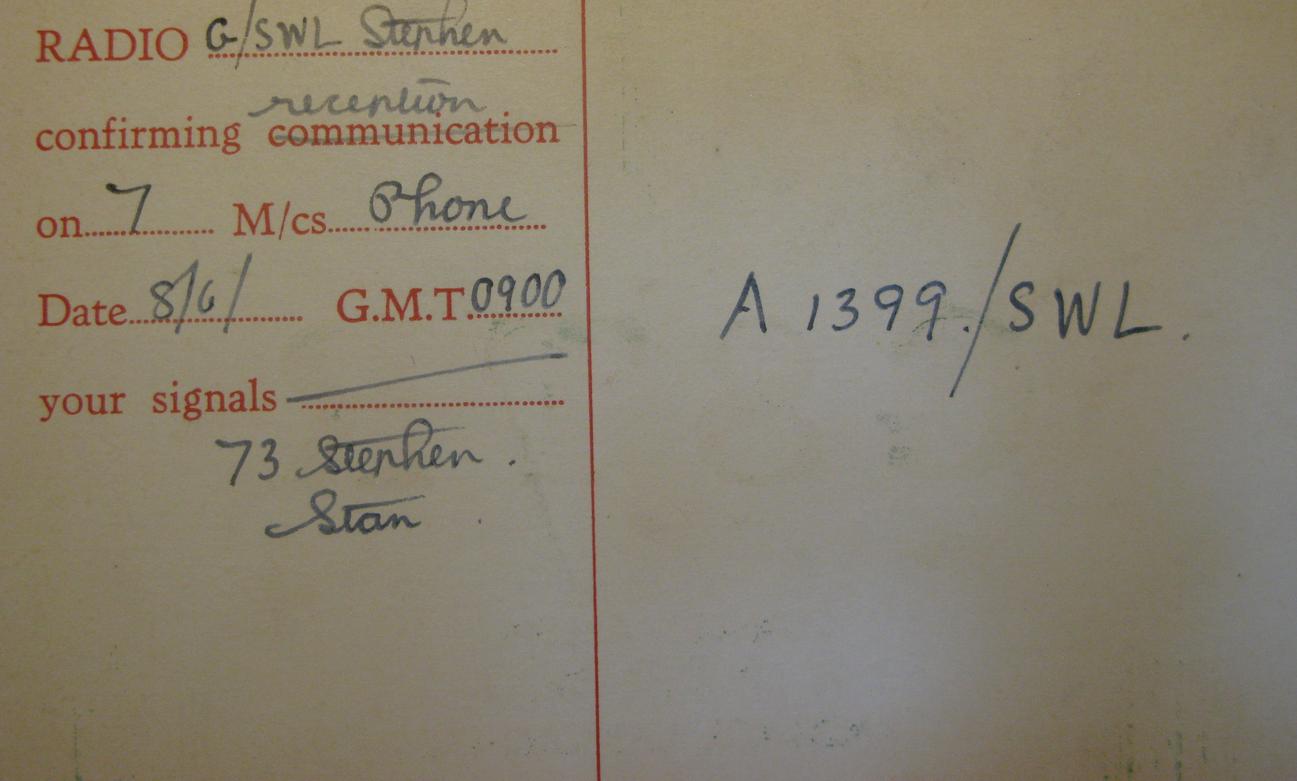 RADIO G/SWL Stephen
reception
confirming communication
on 7 M/cs Phone
Date 8/6/ G.M.T. 0900
your signals
73 Stephen.
Stan
A 1399./SWL.